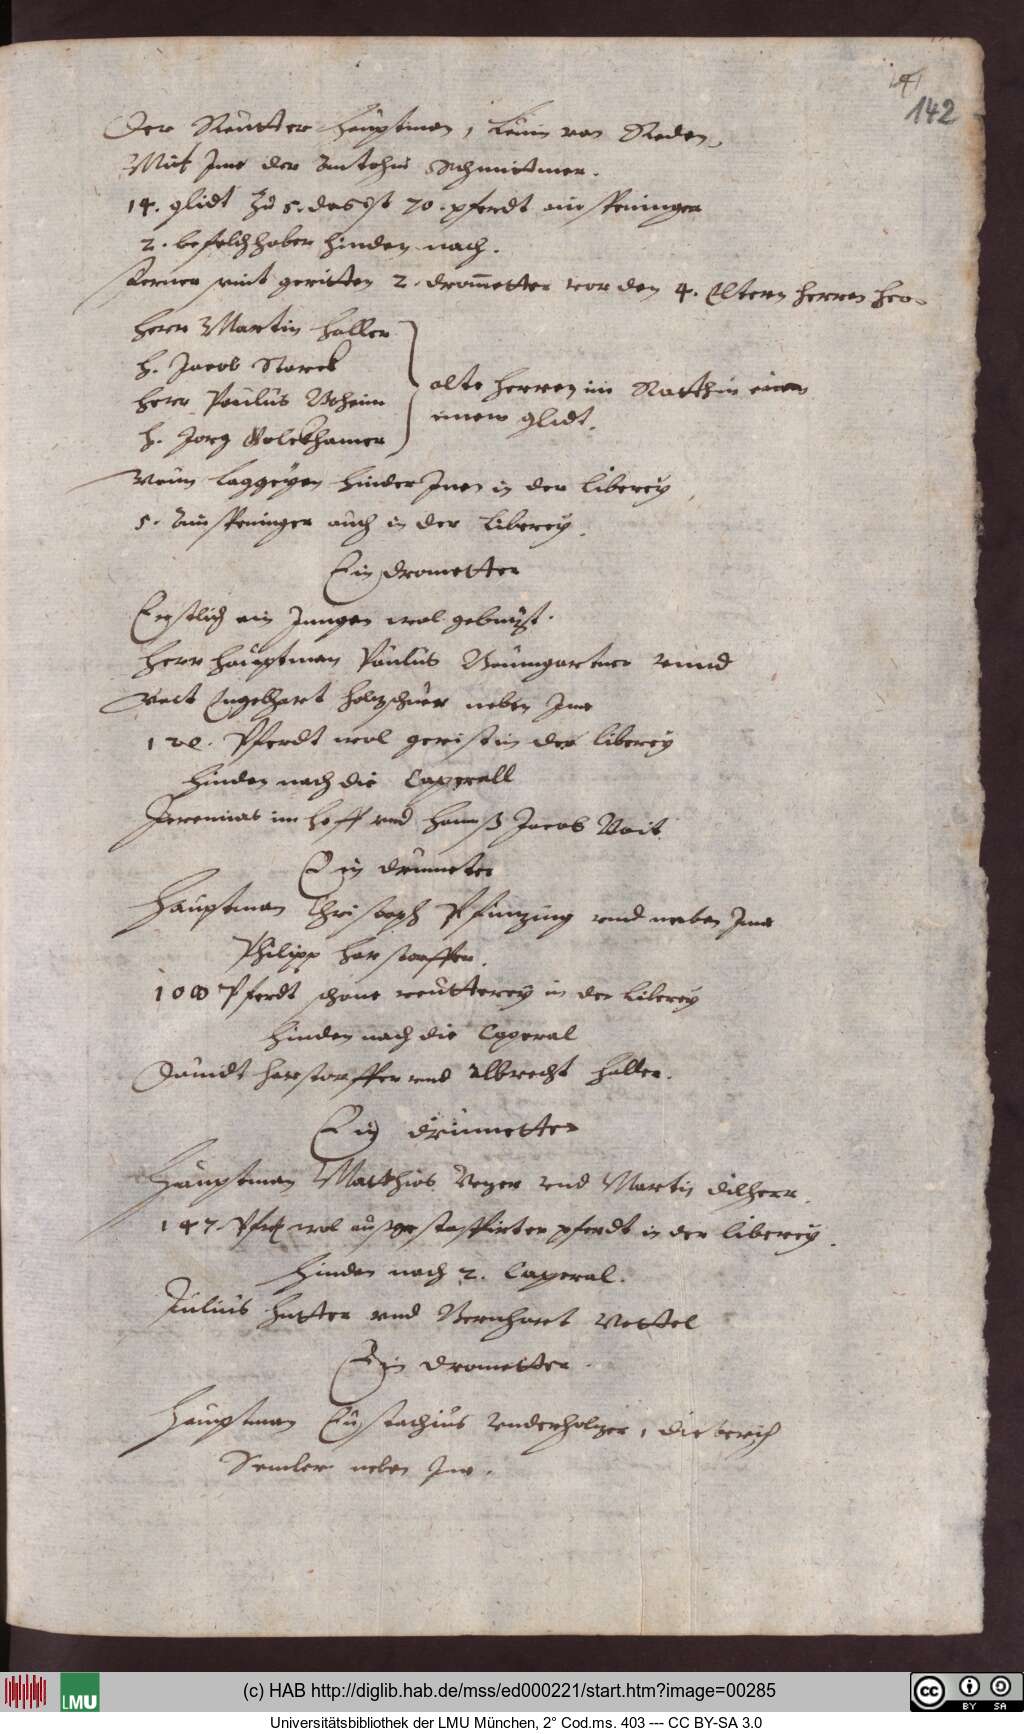 142
Der Reutter Hauptman, Leuin von Reden,
Mit Jme der Antohni Schmittmer.
14. glidt Zu 5. das ist 70. pferdt ein spenniger
2. befelchhaber hinden nach.
Ferner sint geritten 2. drometter vor den 4. Eltern herren her
Herr Martin Haller
H. Jacob Starck
Herr Paulus Beheim
H. Jorg Volckhamer
alte Herren im Ratt hin
einem glidt.
Neun Laggeyen hinder Jnen in der liberey
5. Ainspeninger auch in der Liberey.
Ein drometter
Erstlich ein Jungen wol gebuzt.
Herr Hauptman Paulus Baumgartner vnnd
Veit Engelhart Holzschuer neben Jme
120. Pferdt wol gerist in der liberey
Hinden nach die Caperall
Jeremias im Hoff vnd Hannß Jacob Voit
Ein drumeter
Hauptman Christoph Pfinzing vnd neben Jme
Philipp Harstorffer.
100 Pferdt schone reutterey in der liberey
Hinden nach die Caperal
Dauidt Harstorffer vnd Albrecht Haller.
Ein drumetter
Hauptman Matthias Vezer vnd Martin dilherr.
147. wol außgestaffirter pferdt in der liberey.
Hinden nach 2. Caperal.
Julius Hutter vnd Bernhart Nottel
Ein drometter.
Hauptman Eustachius Vnderholzer, dietterich
Semler neben Jme.
(c) HAB http://diglib.hab.de/mss/ed000221/start.htm?image=00285
LMU
BY SA
Universitätsbibliothek der LMU München, 2° Cod.ms. 403 --- CC BY-SA 3.0